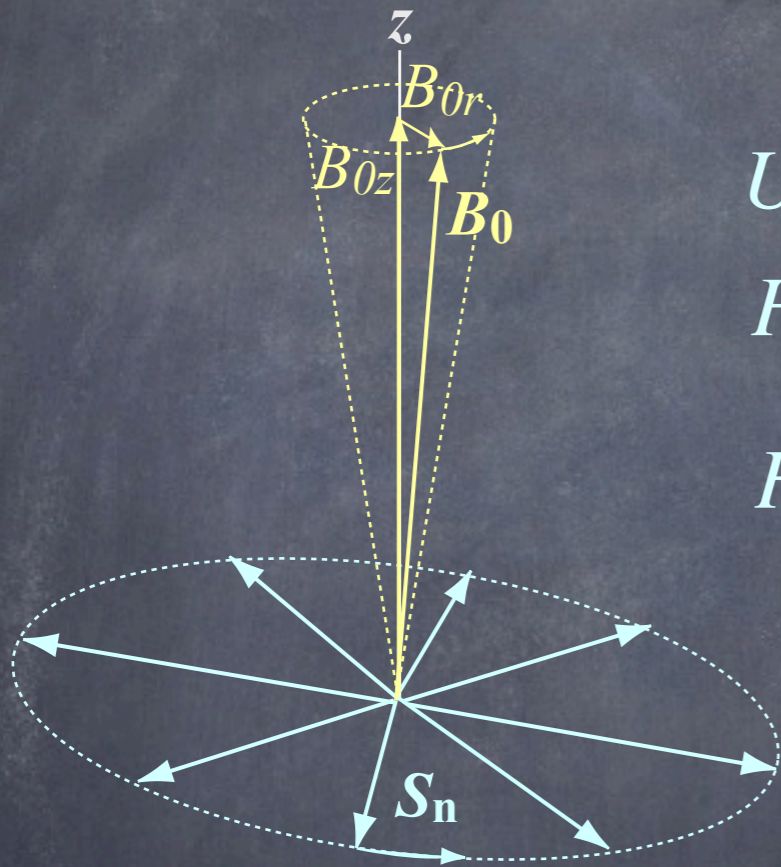 z
B0r
B0z
B0
U
Sn